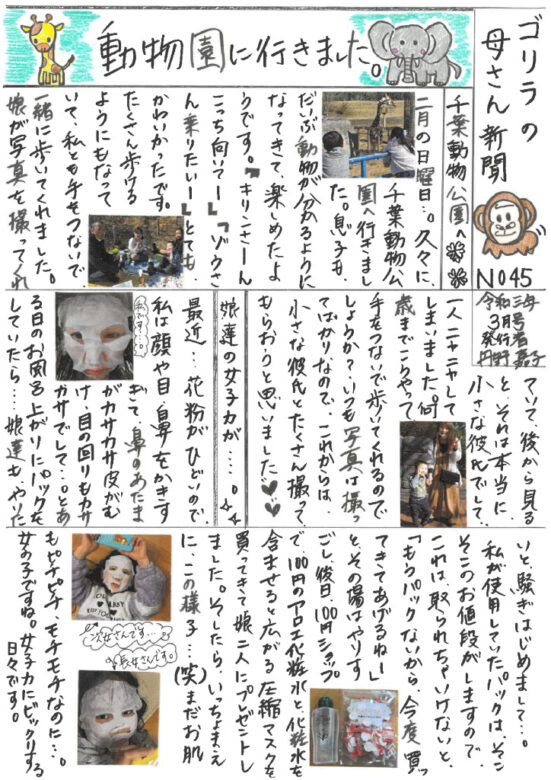 ゴリラの
母さん新聞
No45
令和三年
3月号
発行者
円野嘉子
動物園に行きました。
千葉動物公園へ
二月の日曜日…。久々に、
千葉動物公
園へ行きまし
た。息子も、
だいぶ動物が分かるように
なってきて、楽しめたよ
うです。『キリンさーん
こっち向いてー』『ゾウさ
ん乗りたいー』とても、
かわいかったです。
たくさん歩ける
ようにもなって
いて、私とも手をつないで
一緒に歩いてくれました。
娘が写真を撮ってくれ
ていて、後から見る
と、それは本当に
小さな彼氏でして、
一人ニヤニヤして
しまいました。何
歳までこうやって
手をつないで歩いてくれるので
しょうか?いつも写真は撮っ
てばかりなので、これからは、
小さな彼氏とたくさん撮って
もらおうと思いました♡♥
娘達の女子力が…。
最近…花粉がひどいので、
私は顔や目、鼻をかきす
ぎて、鼻のあたま
がカサカサ皮がむ
け、目の回りもカサ
カサでして…。とあ
る日のお風呂上がりにパックを
していたら…娘達も、やりた
私です…。
いと騒ぎはじめまして…。
私が使用していたパックは、そこ
そこのお値段がしますので、
これは、取られちゃいけないと、
「もうパックないから、今度、買っ
てきてあげるねー」
と、その場はやりす
ごし、後日、100円ショップ
で、100円のアロエ化粧水と、化粧水を
含ませると広がる圧縮マスクを
買ってきて娘二人にプレゼントし
ました。そしたら、いっちょまえ
に、この様子…(笑)まだお肌
もピチピチ モチモチなのに…。
女の子ですね。女子力にビックリする
日々です。
次女さんです…
長女さんです。